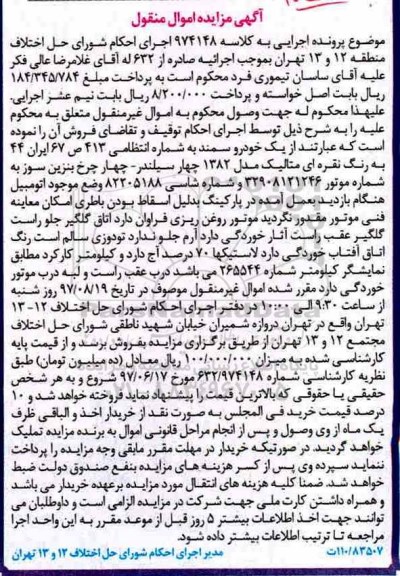 آگهی مزایده اموال منقول
موضوع پرونده اجرایی به کلاسه ۹۷۴۱۴۸ اجرای احکام شورای حل اختلاف
منطقه ۱۲ و ۱۳ تهران بموجب اجرائیه صادره از ۶۳۲ له آقای غلامرضا عالی فکر
علیه آقای ساسان تیموری فرد محکوم است به پرداخت مبلغ ۱۸۴/۳۴۵/۷۸۴
ریال بابت اصل خواسته و پرداخت ۸/۲۰۰/۰۰۰ ریال بابت نیم عشر اجرایی.
علیهذا محکوم له جهت وصول محکوم به اموال غیرمنقول متعلق به محکوم
علیه را به شرح ذیل توسط اجرای احکام توقیف و تقاضای فروش آن را نموده
است که عبارتند از یک خودرو سمند به شماره انتظامی ۴۱۳ ص ۶۷ ایران ۴۴
به رنگ نقره ای متالیک مدل ۱۳۸۲ چهار سیلندر- چهار چرخ بنزین سوز به
شماره موتور ۳۲۹۰۸۱۲۱۲۴۶ و شماره شاسی ۸۲۲۰۵۱۸۸ وضع موجود اتومبیل
هنگام بازدید خودرو در پارکینگ بدلیل اسقاط بودن باطری امکان معاینه
فنی موتور مقدور نگردید موتور روغن ریزی فراوان دارد اتاق گلگیر جلو راست
گلگیر عقب راست آثار خوردگی دارد آرم جلو ندارد تودوزی سالم است رنگ
اتاق آفتاب خوردگی دارد لاستیکها ۷۰ درصد آج دارد و کیلومتر کارکرد مطابق
نمایشگر کیلومتر شماره ۲۶۵۵۴۴ می باشد درب عقب راست و لبه درب موتور
خوردگی دارد مقرر شده اموال غیرمنقول موصوف در تاریخ ۹۷/۰۸/۱۹ روز شنبه
از ساعت ۹:۳۰ الی ۱۰:۰۰ در دفتر اجرای احکام شورای حل اختلاف ۱۲-۱۳
تهران واقع در تهران دروازه شمیران خیابان شهید ناطقی شورای حل اختلاف
مجتمع ۱۲ و ۱۳ تهران از طریق برگزاری مزایده بفروش برسد و از قیمت پایه
کارشناسی شده به میزان ۱۰۰/۰۰۰/۰۰۰ ریال معادل (ده میلیون تومان) طبق
نظریه کارشناسی شماره ۶۳۲/۹۷۴۱۴۸ مورخ ۹۷/۰۶/۱۷ شروع و به هر شخص
حقیقی یا حقوقی که بالاترین قیمت را پیشنهاد نماید فروخته خواهد شد و ۱۰
درصد قیمت خرید فی المجلس به صورت نقد از خریدار اخذ و الباقی ظرف
یک ماه از وی وصول و پس از انجام مراحل قانونی اموال به برنده مزایده تملیک
خواهد گردید. در صورتیکه خریدار در مهلت مقرر مابقی وجه مزایده را پرداخت
ننماید سپرده وی پس از کسر هزینه های مزایده بنفع صندوق دولت ضبط
خواهد شد. ضمنا کلیه هزینه های انتقال مورد مزایده برعهده خریدار می باشد
و همراه داشتن کارت ملی جهت شرکت در مزایده الزامی است و داوطلبان می
توانند جهت اخذ اطلاعات بیشتر ۵ روز قبل از موعد مقرر به این واحد اجرا
مراجعه تا ترتیب اطلاعات بیشتر داده شود.
۱۱۰/۸۳۵۰۷ت مدیر اجرای احکام شورای حل اختلاف ۱۲ و ۱۳ تهران